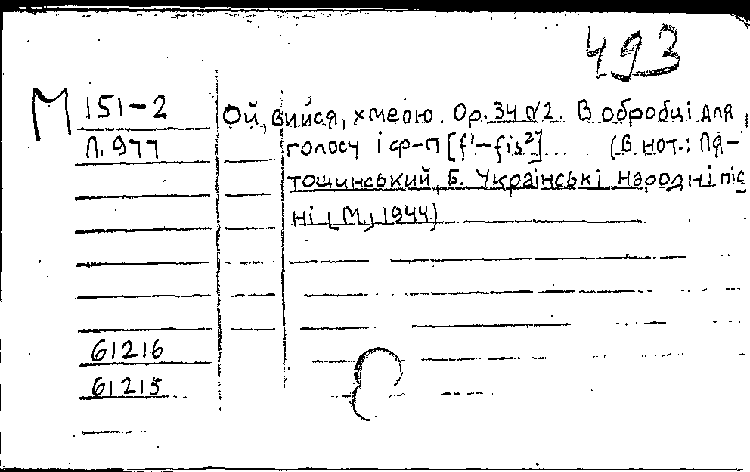 493
М 151-2 Ой, вийся, хмелю. Ор. 34 №2. В обробці для
Л. 977 голосу і ф-п [f¹-fis²] (В нот.: Ля-
тошинський, Б. Українські народні піс
ні (М., 1944)
61216
61215